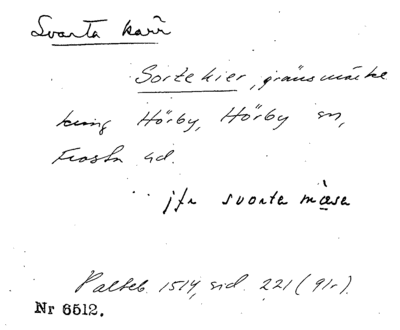 Svarta karr
Sortekier, gränsmärke
kring Hörby, Hörby sn,
Frosta hd.
jfr svarta måsa
1514, sid. 221 (91r).
Nr 6512.